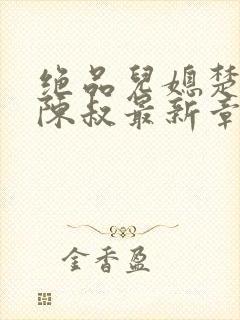 绝品兒媳楚
陈叔最新章
金香盈